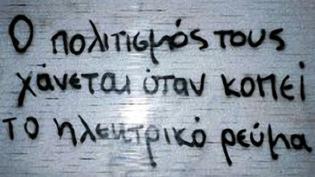 Ο πολιτισμός τους
χάνεται όταν κοπεί
το ηλεκτρικό ρεύμα